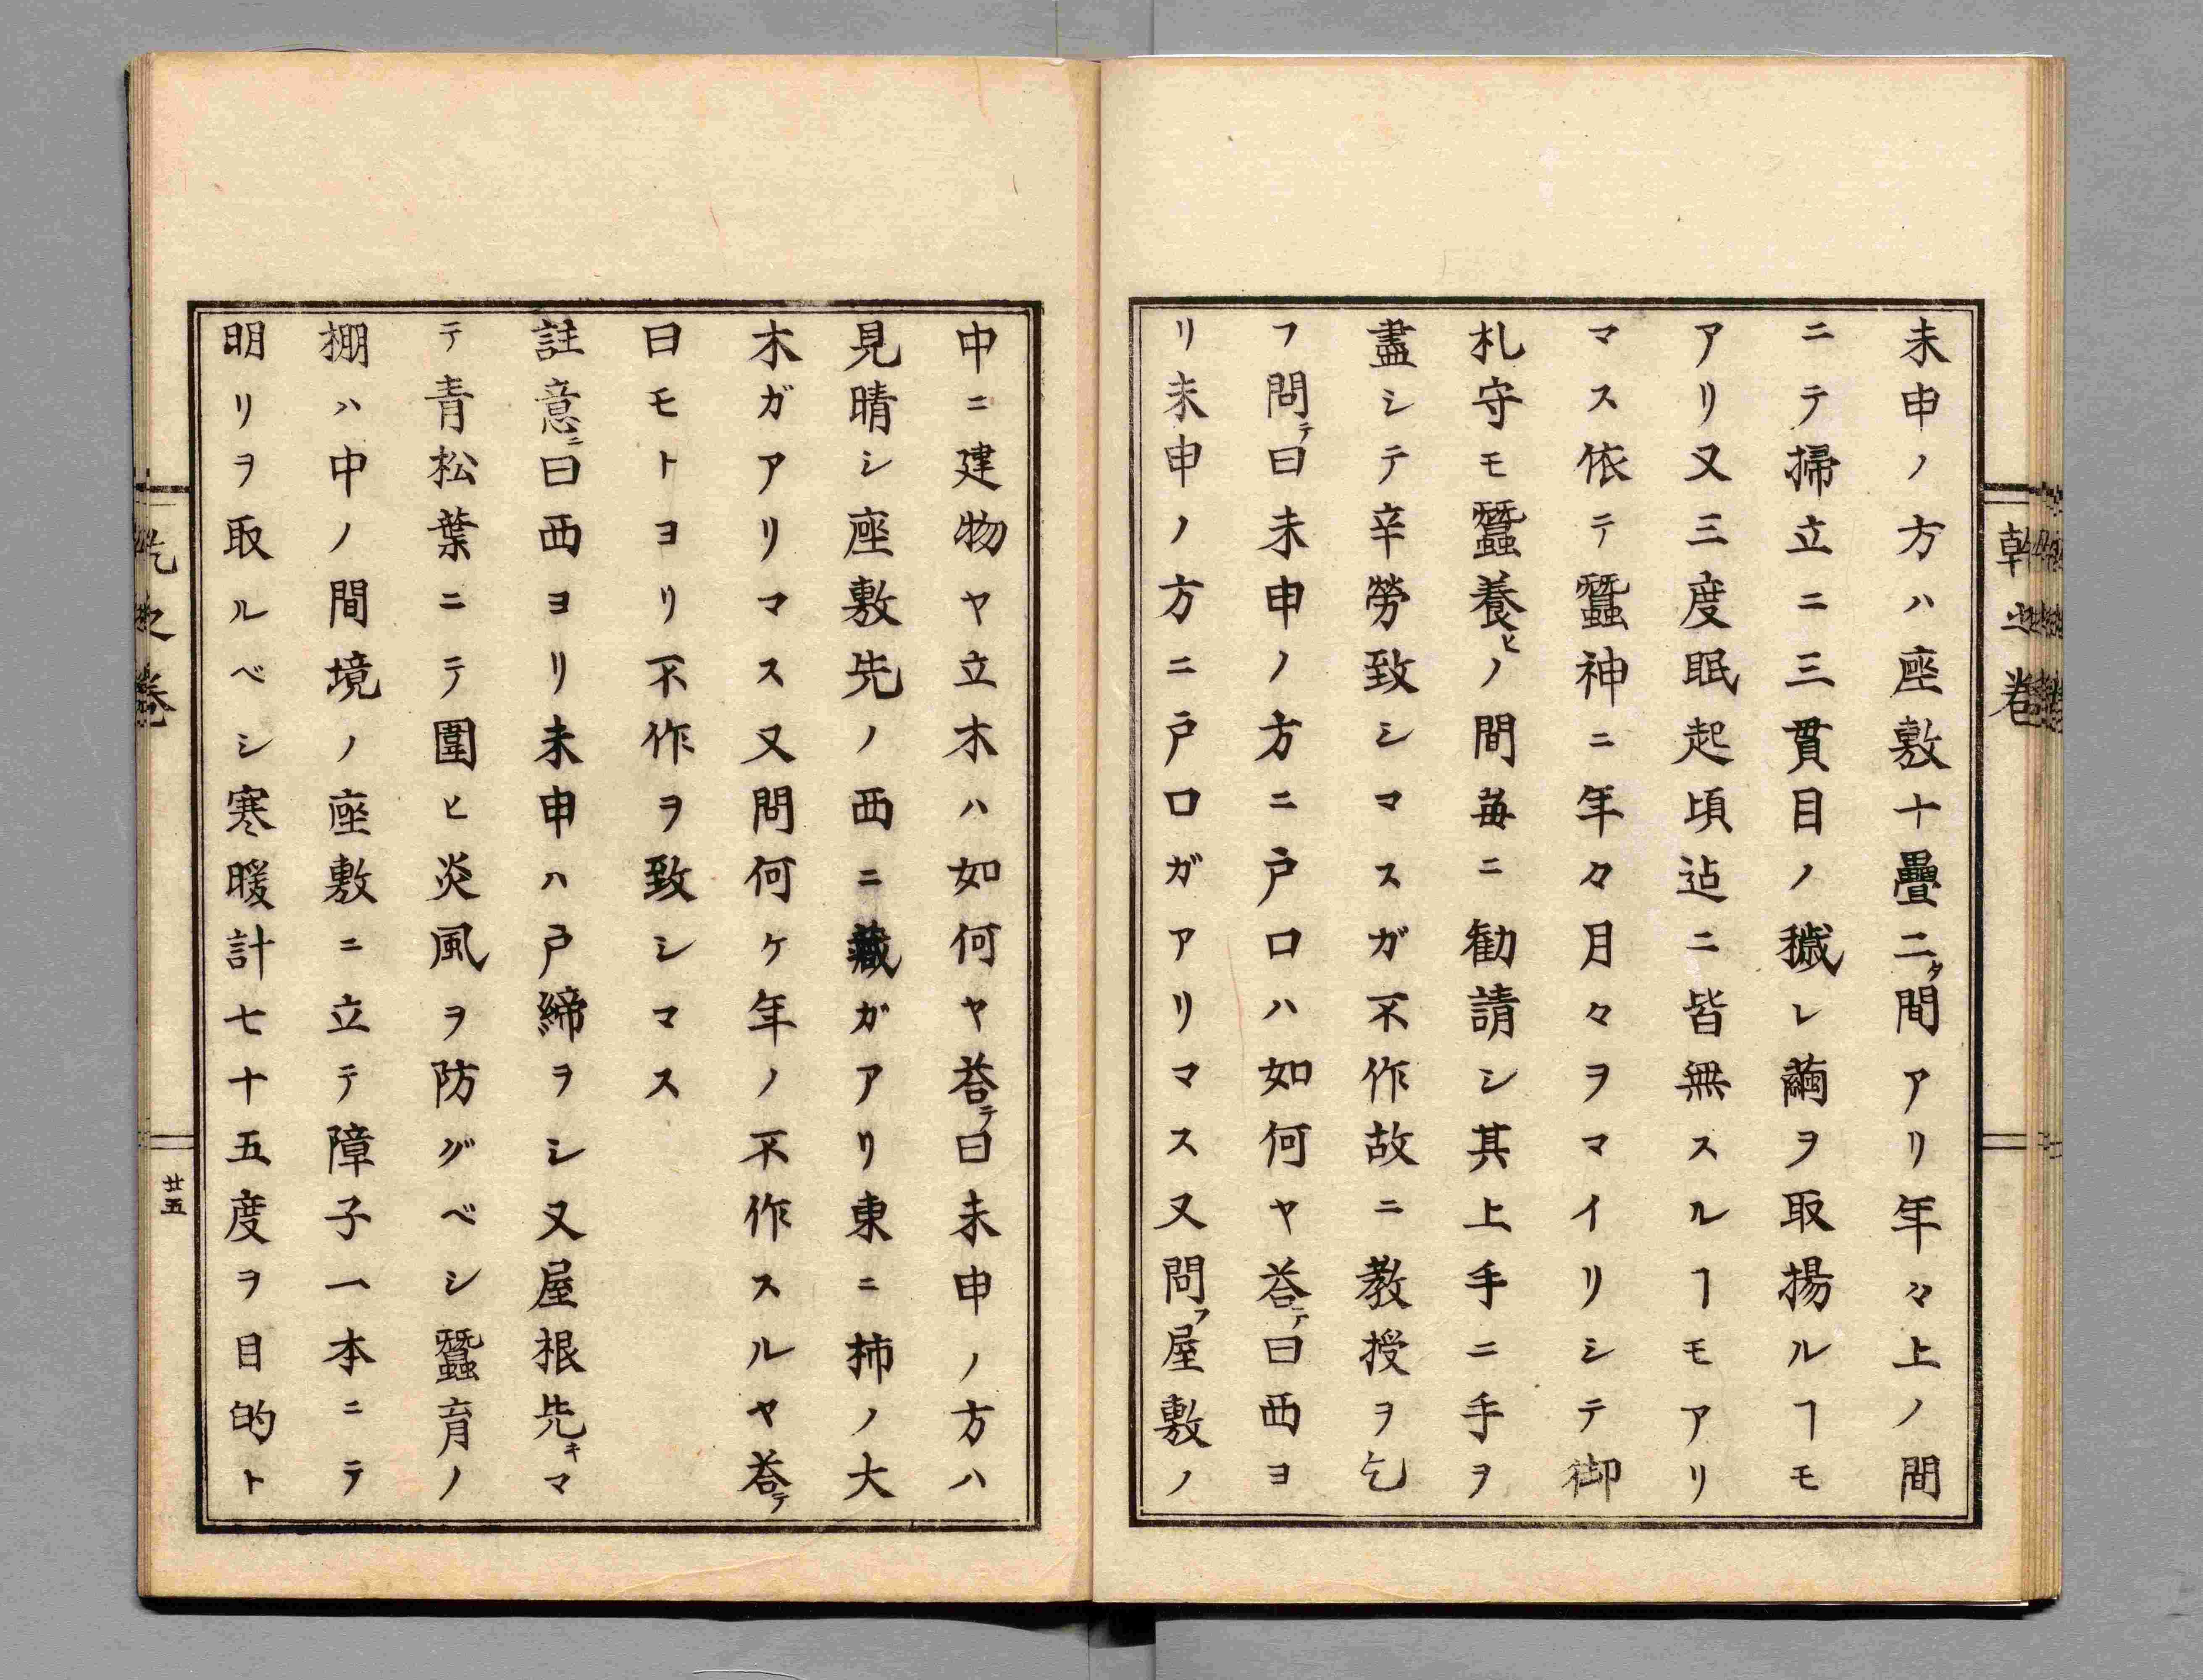 乾之卷
未申ノ方ハ座敷十疊二タ間アリ年々上ノ間
ニテ掃立ニ三貫目ノ穢レ繭ヲ取揚ルヿモ
アリ又三度眠起頃迠ニ皆無スルヿモアリ
マス依テ蠶神ニ年々月々ヲマイリシテ御
札守モ蠶養ヒノ間每ニ勧請シ其上手ニ手ヲ
盡シテ辛勞致シマスガ不作故ニ教授ヲ乞
フ問テ曰未申ノ方ニ戸口ハ如何ヤ荅テ曰西ヨ
リ未申ノ方ニ戸口ガアリマス又問フ屋敷ノ
中ニ建物ヤ立木ハ如何ヤ荅テ曰未申ノ方ハ
見晴シ座敷先ノ西ニ藏ガアリ東ニ柿ノ大
木ガアリマス又問何ケ年ノ不作スルヤ荅テ
曰モトヨリ不作ヲ致シマス
註意ニ曰西ヨリ未申ハ戸締ヲシ又屋根先キマ
テ青松葉ニテ圍ヒ炎風ヲ防グベシ蠶育ノ
棚ハ中ノ間境ノ座敷ニ立テ障子一本ニテ
明リヲ取ルベシ寒暖計七十五度ヲ目的ト
之卷
廿五